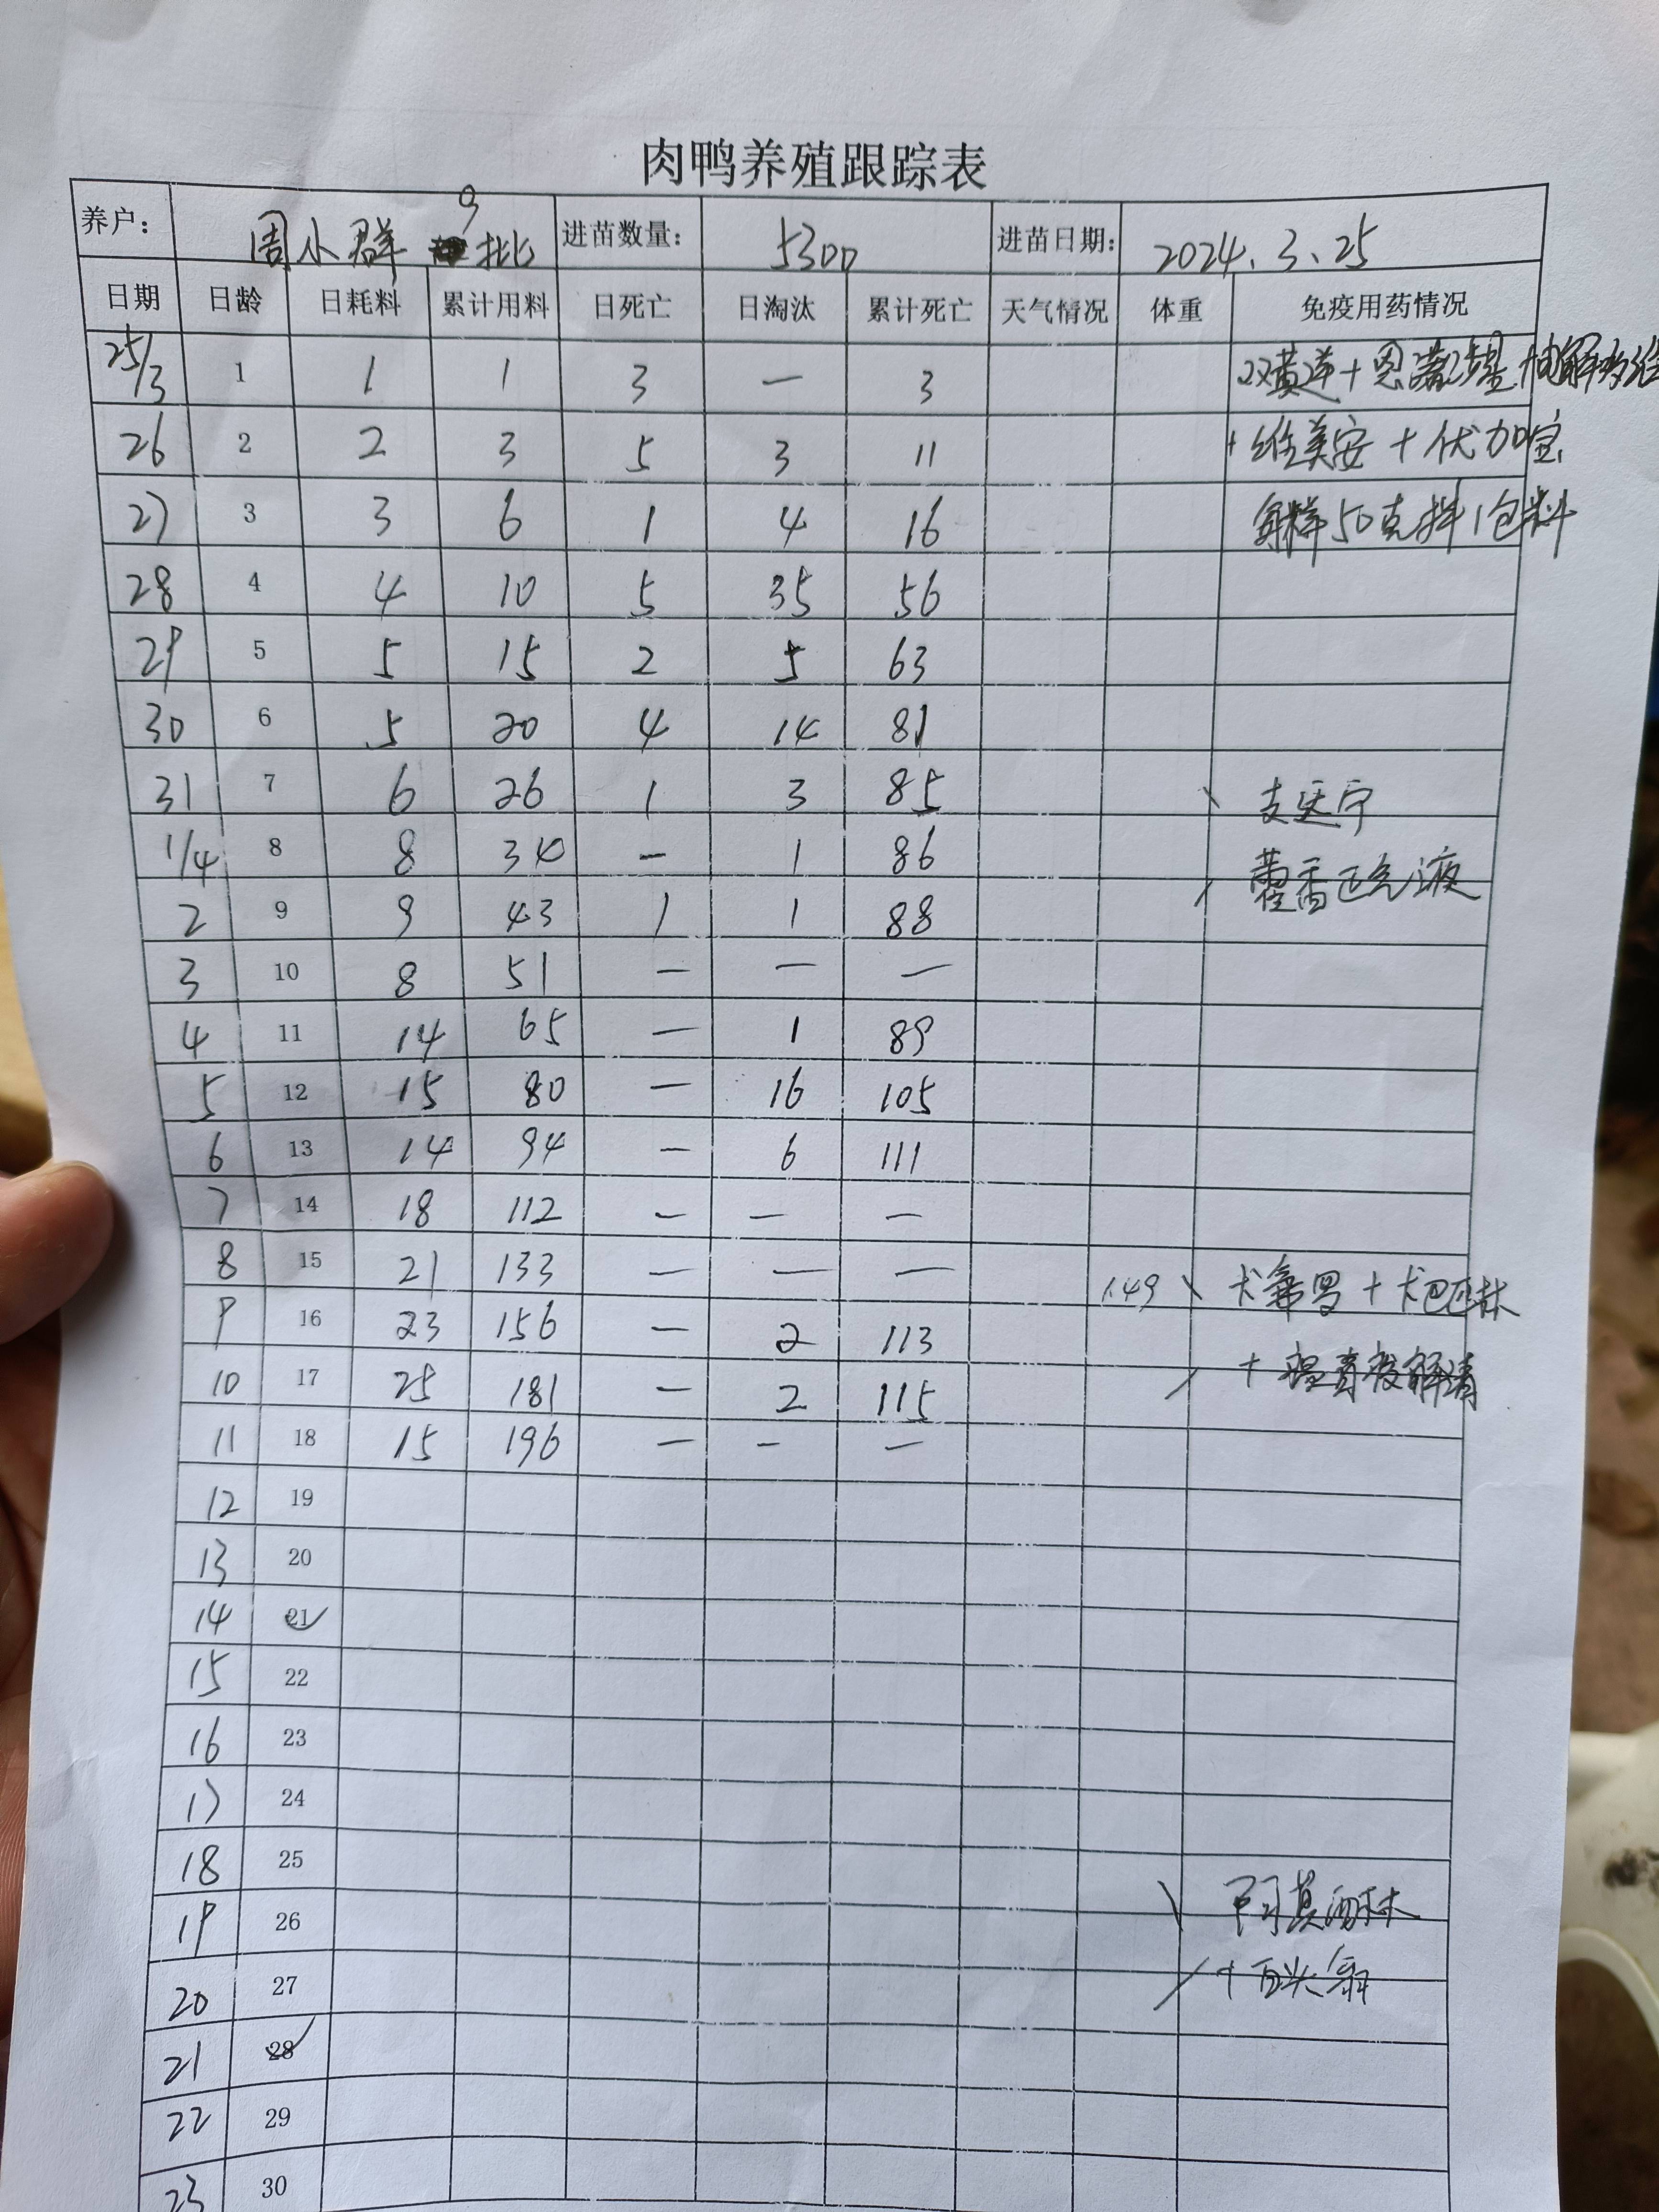 肉鸭养殖跟踪表
养户： 周小群 9批 进苗数量： 5300 进苗日期： 2024.3.25
日期 日龄 日耗料 累计用料 日死亡 日淘汰 累计死亡 天气情况 体重 免疫用药情况
25/3 1 1 1 3 — 3 双黄连+恩诺沙星+电解多维
26 2 2 3 5 3 11 +维美安+优加宝
27 3 3 6 1 4 16 50克拌1包料
28 4 4 10 5 35 56
29 5 5 15 2 5 63
30 6 5 20 4 14 81
31 7 6 26 1 3 85 支廷宁
1/4 8 8 34 — 1 86 藿香正气液
2 9 9 43 1 1 88
3 10 8 51 — — —
4 11 14 65 — 1 89
5 12 15 80 — 16 105
6 13 14 94 — 6 111
7 14 18 112 — — —
8 15 21 133 — — — 1.49 卡巴匹林
9 16 23 156 — 2 113
10 17 25 181 — 2 115 +
11 18 15 196 — — —
12 19
13 20
14 21
15 22
16 23
17 24
18 25
19 26 阿莫西林
20 27 +白头翁
21 28
22 29
23 30